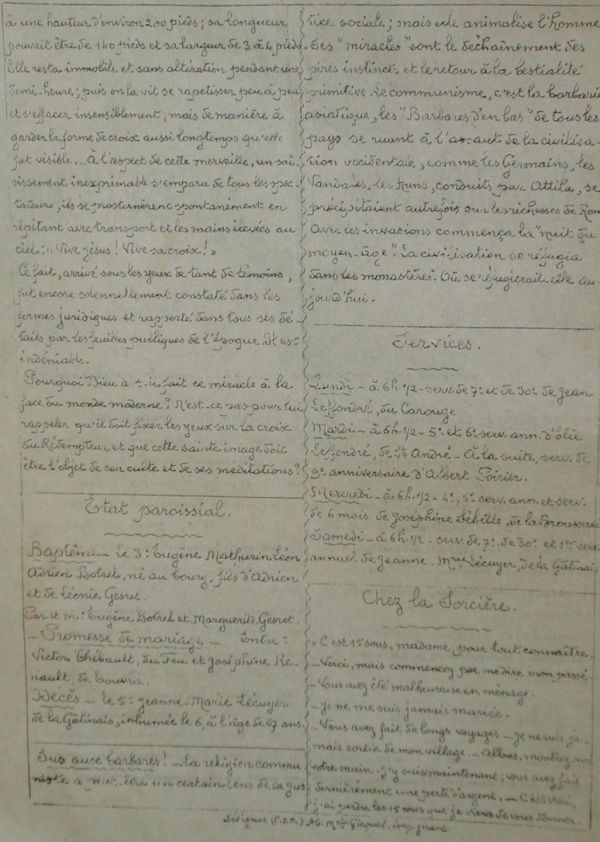 à une hauteur d'environ 200 pieds ; sa longueur
pouvait être de 140 pieds et sa largeur de 3 à 4 pieds.
Elle resta immobile et sans altération pendant une
demi-heure ; puis on la vit se rapetisser peu à peu
et s'effacer insensiblement, mais de manière à
garder la forme de croix aussi longtemps qu'elle
fut visible. À l'aspect de cette merveille, un sai-
sissement inexprimable s'empara de tous les spec-
tateurs, ils se prosternèrent spontanément en
répétant avec transport et les mains élevées au
ciel : « Vive Jésus ! Vive sa croix ! »
Ce fait, arrivé sous les yeux de tant de témoins,
fut encore solennellement constaté dans les
formes juridiques et rapporté dans tous ses dé-
tails par les feuilles publiques de l'époque. Il est
indéniable.
Pourquoi Dieu a-t-il fait ce miracle à la
face du monde moderne ? N'est-ce pas pour lui
rappeler qu'il doit fixer les yeux sur la croix
du Rédempteur et que cette sainte image doit
être l'objet de son culte et de ses méditations ?
État paroissial.
Baptême - Le 3 : Eugène Mathurin Léon
Adrien Botrel, né au bourg, fils d'Adrien
et de Léonie Gesret.
Par. et m. : Eugène Botrel et Marguerite Gesret.
- Promesse de mariage - Entre :
Victor Thébault, du Feu et Joséphine Re-
nault, de Bouvra.
Décès - Le 5 : Jeanne-Marie Lécuyer
de la Gatinais, inhumée le 6, à l'âge de 67 ans.
Sus aux barbares ! - La religion commu-
niste a peut-être un certain sens de la jus
tice sociale ; mais elle animalise l'homme
des "miracles" sont le déchaînement des
pires instincts et le retour à la bestialité
primitive. Le communisme, c'est la barbarie
asiatique, les "Barbares d'en bas" de tous les
pays se ruant à l'assaut de la civilisa-
tion occidentale, comme les Germains, les
Vandales, les Huns, conduits par Attila, se
précipitaient autrefois sur les richesses de Rome
Avec les invasions commença la "nuit du
moyen-âge". La civilisation se réfugia
dans les monastères. Où se réfugierait-elle au-
jourd'hui.
Services.
Lundi - à 6h.1/2 - serv. de 7e et de 30e de Jean
Leffondré, du Carouge
Mardi - à 6h.1/2 - 5e et 6e serv. ann. d'Olie
Leffondré, de St André - À la suite, serv. de
anniversaire d'Albert Poirier.
Mercredi - à 6h.1/2 - 4e, 5e serv. ann. et serv.
de 6 mois de Joséphine Sébille, de la
Samedi - à 6h.1/2 - serv. de 7e de 30e et 1er serv.
annuel de Jeanne-Marie Lécuyer, de la Gatinais
Chez la Sorcière.
« C'est 15 sous, madame, pour tout connaître.
- Voici, mais commencez par me dire mon passé.
- Vous avez été malheureuse en ménage.
- Je ne me suis jamais mariée.
- Vous avez fait de longs voyages - Je ne suis ja-
mais sortie de mon village. - Allons, montrez-moi
votre main. J'y suis maintenant ; vous avez fait
dernièrement une perte d'argent. - C'est vrai,
j'ai perdu les 15 sous que je viens de vous donner.
Sérignac Gicquel, imp. gérant